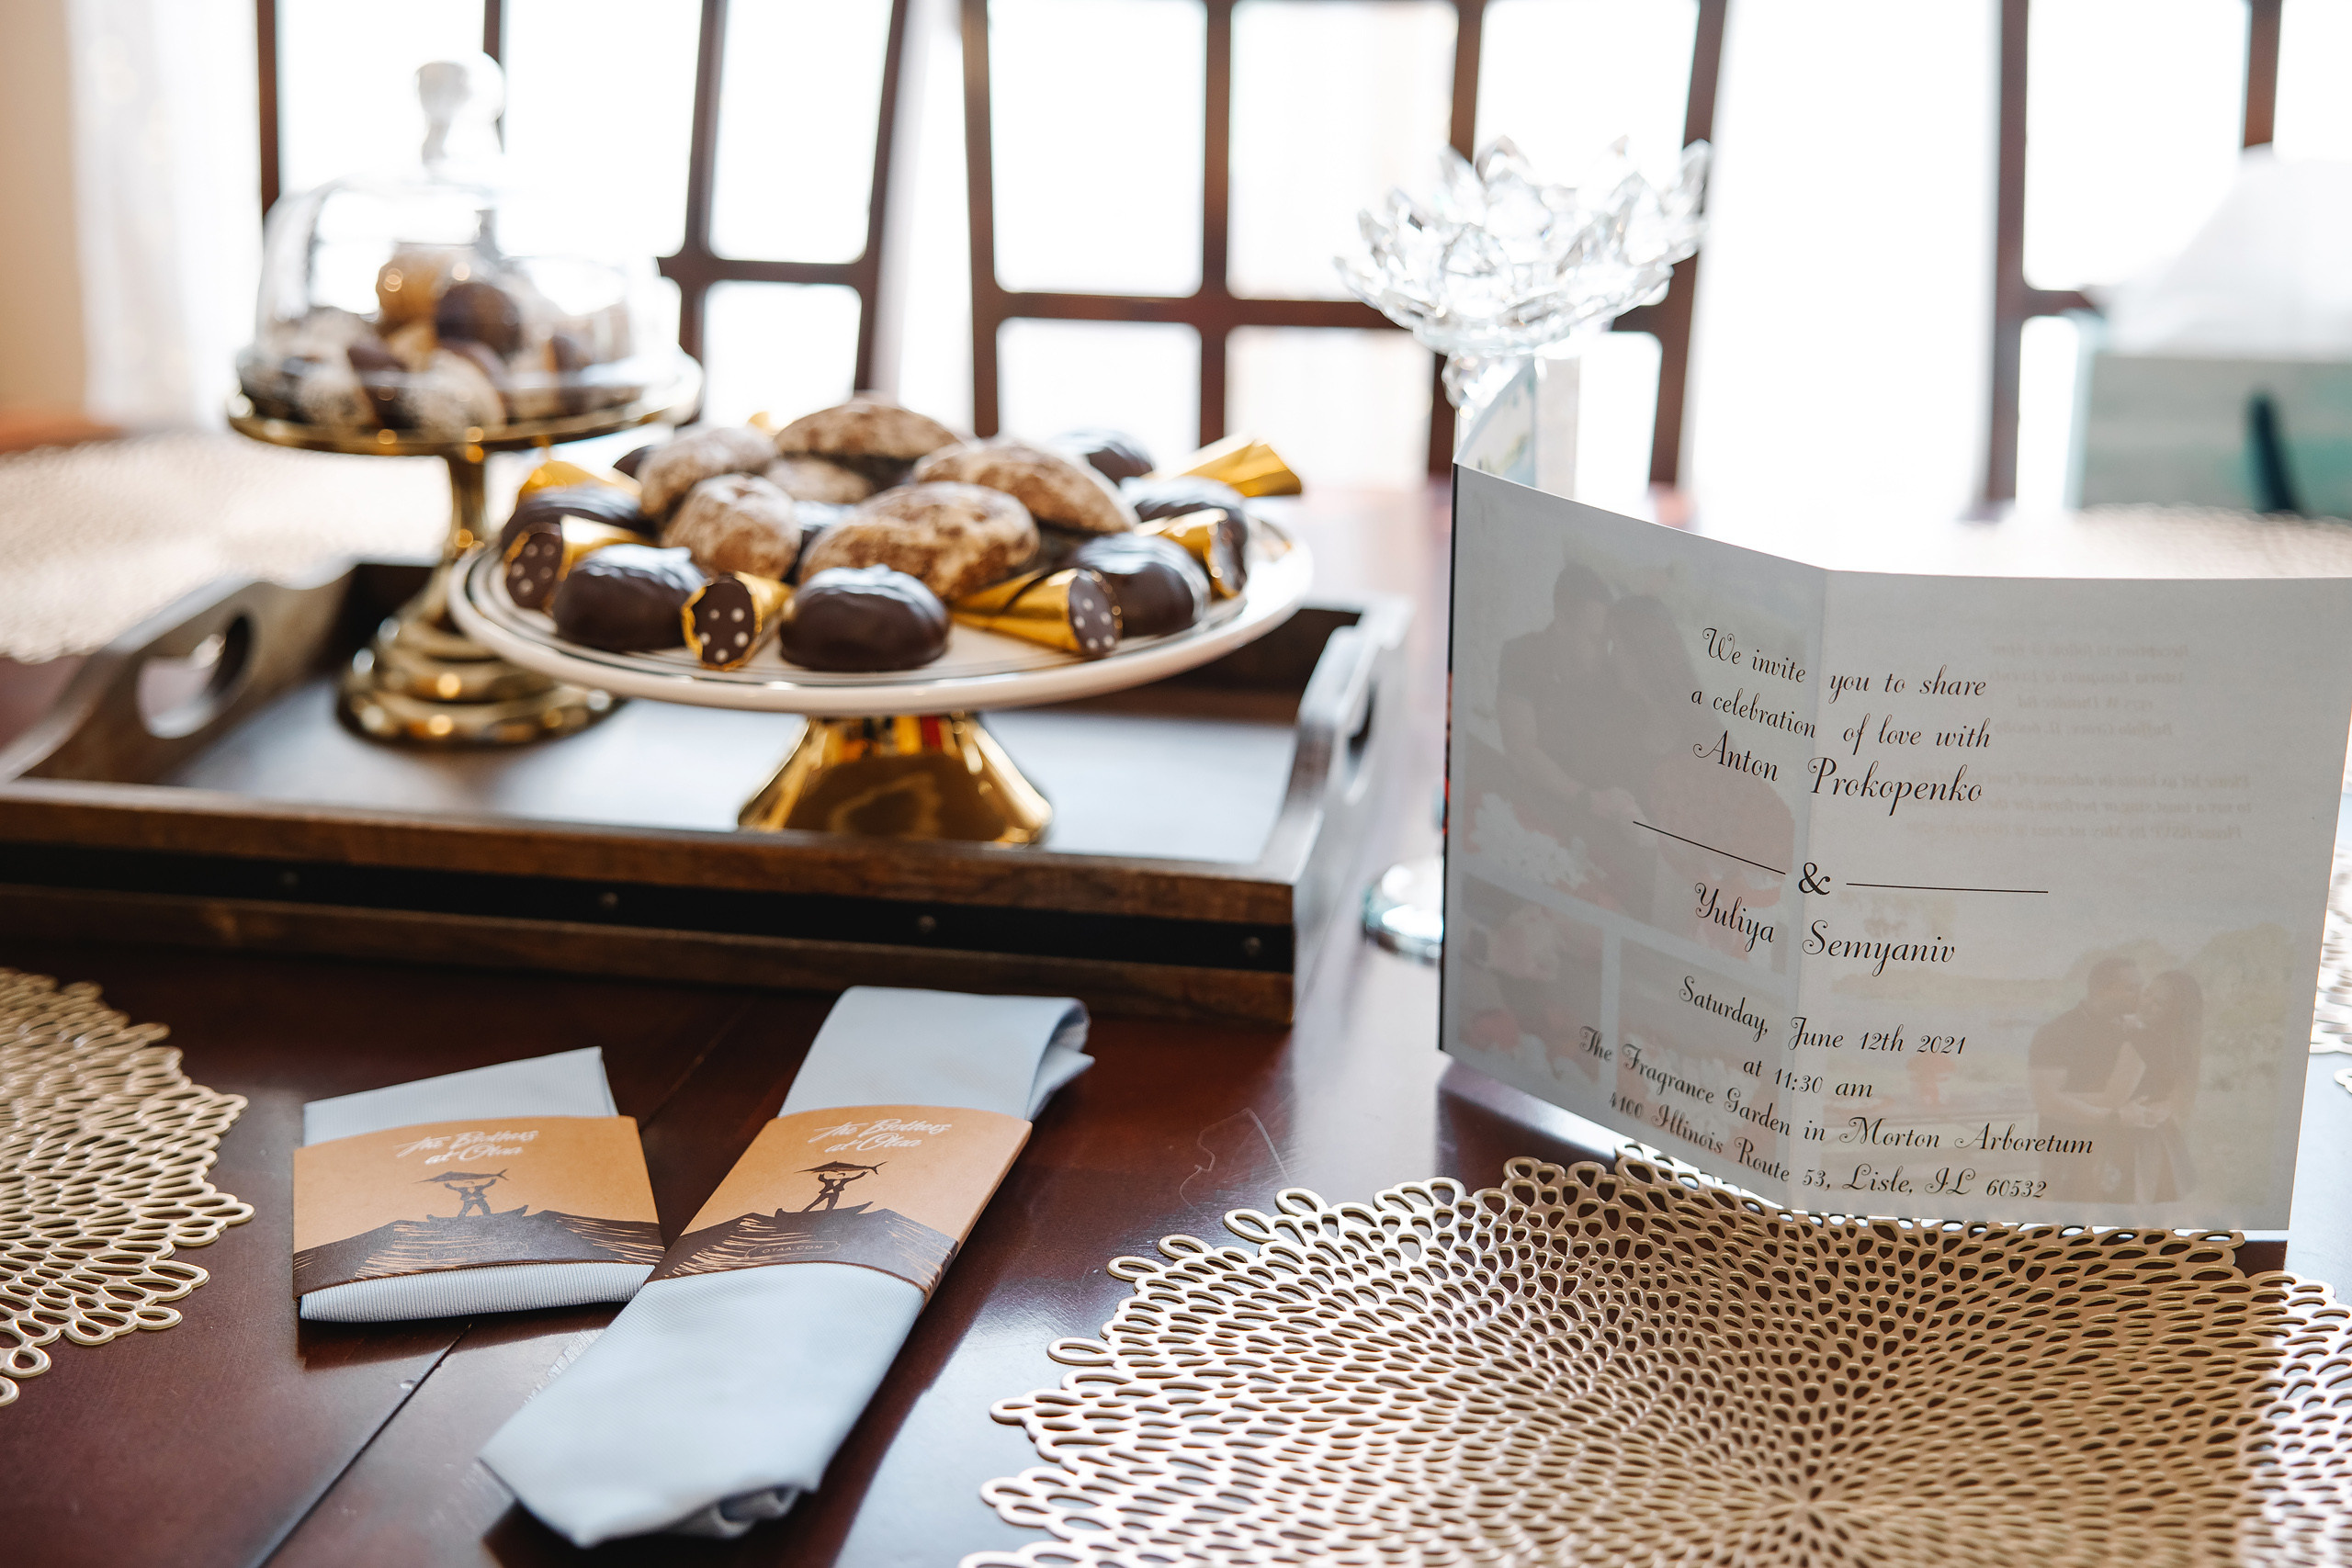 We invite you to share
a celebration of love with
Anton Prokopenko
&
Yuliya Semyaniv
Saturday, June 12th 2021
at 11:30 am
The Fragrance Garden in Morton Arboretum
4100 Illinois Route 53, Lisle, IL 60532
The Brothers
at Otaa
The Brothers
at Otaa
OTAA.COM